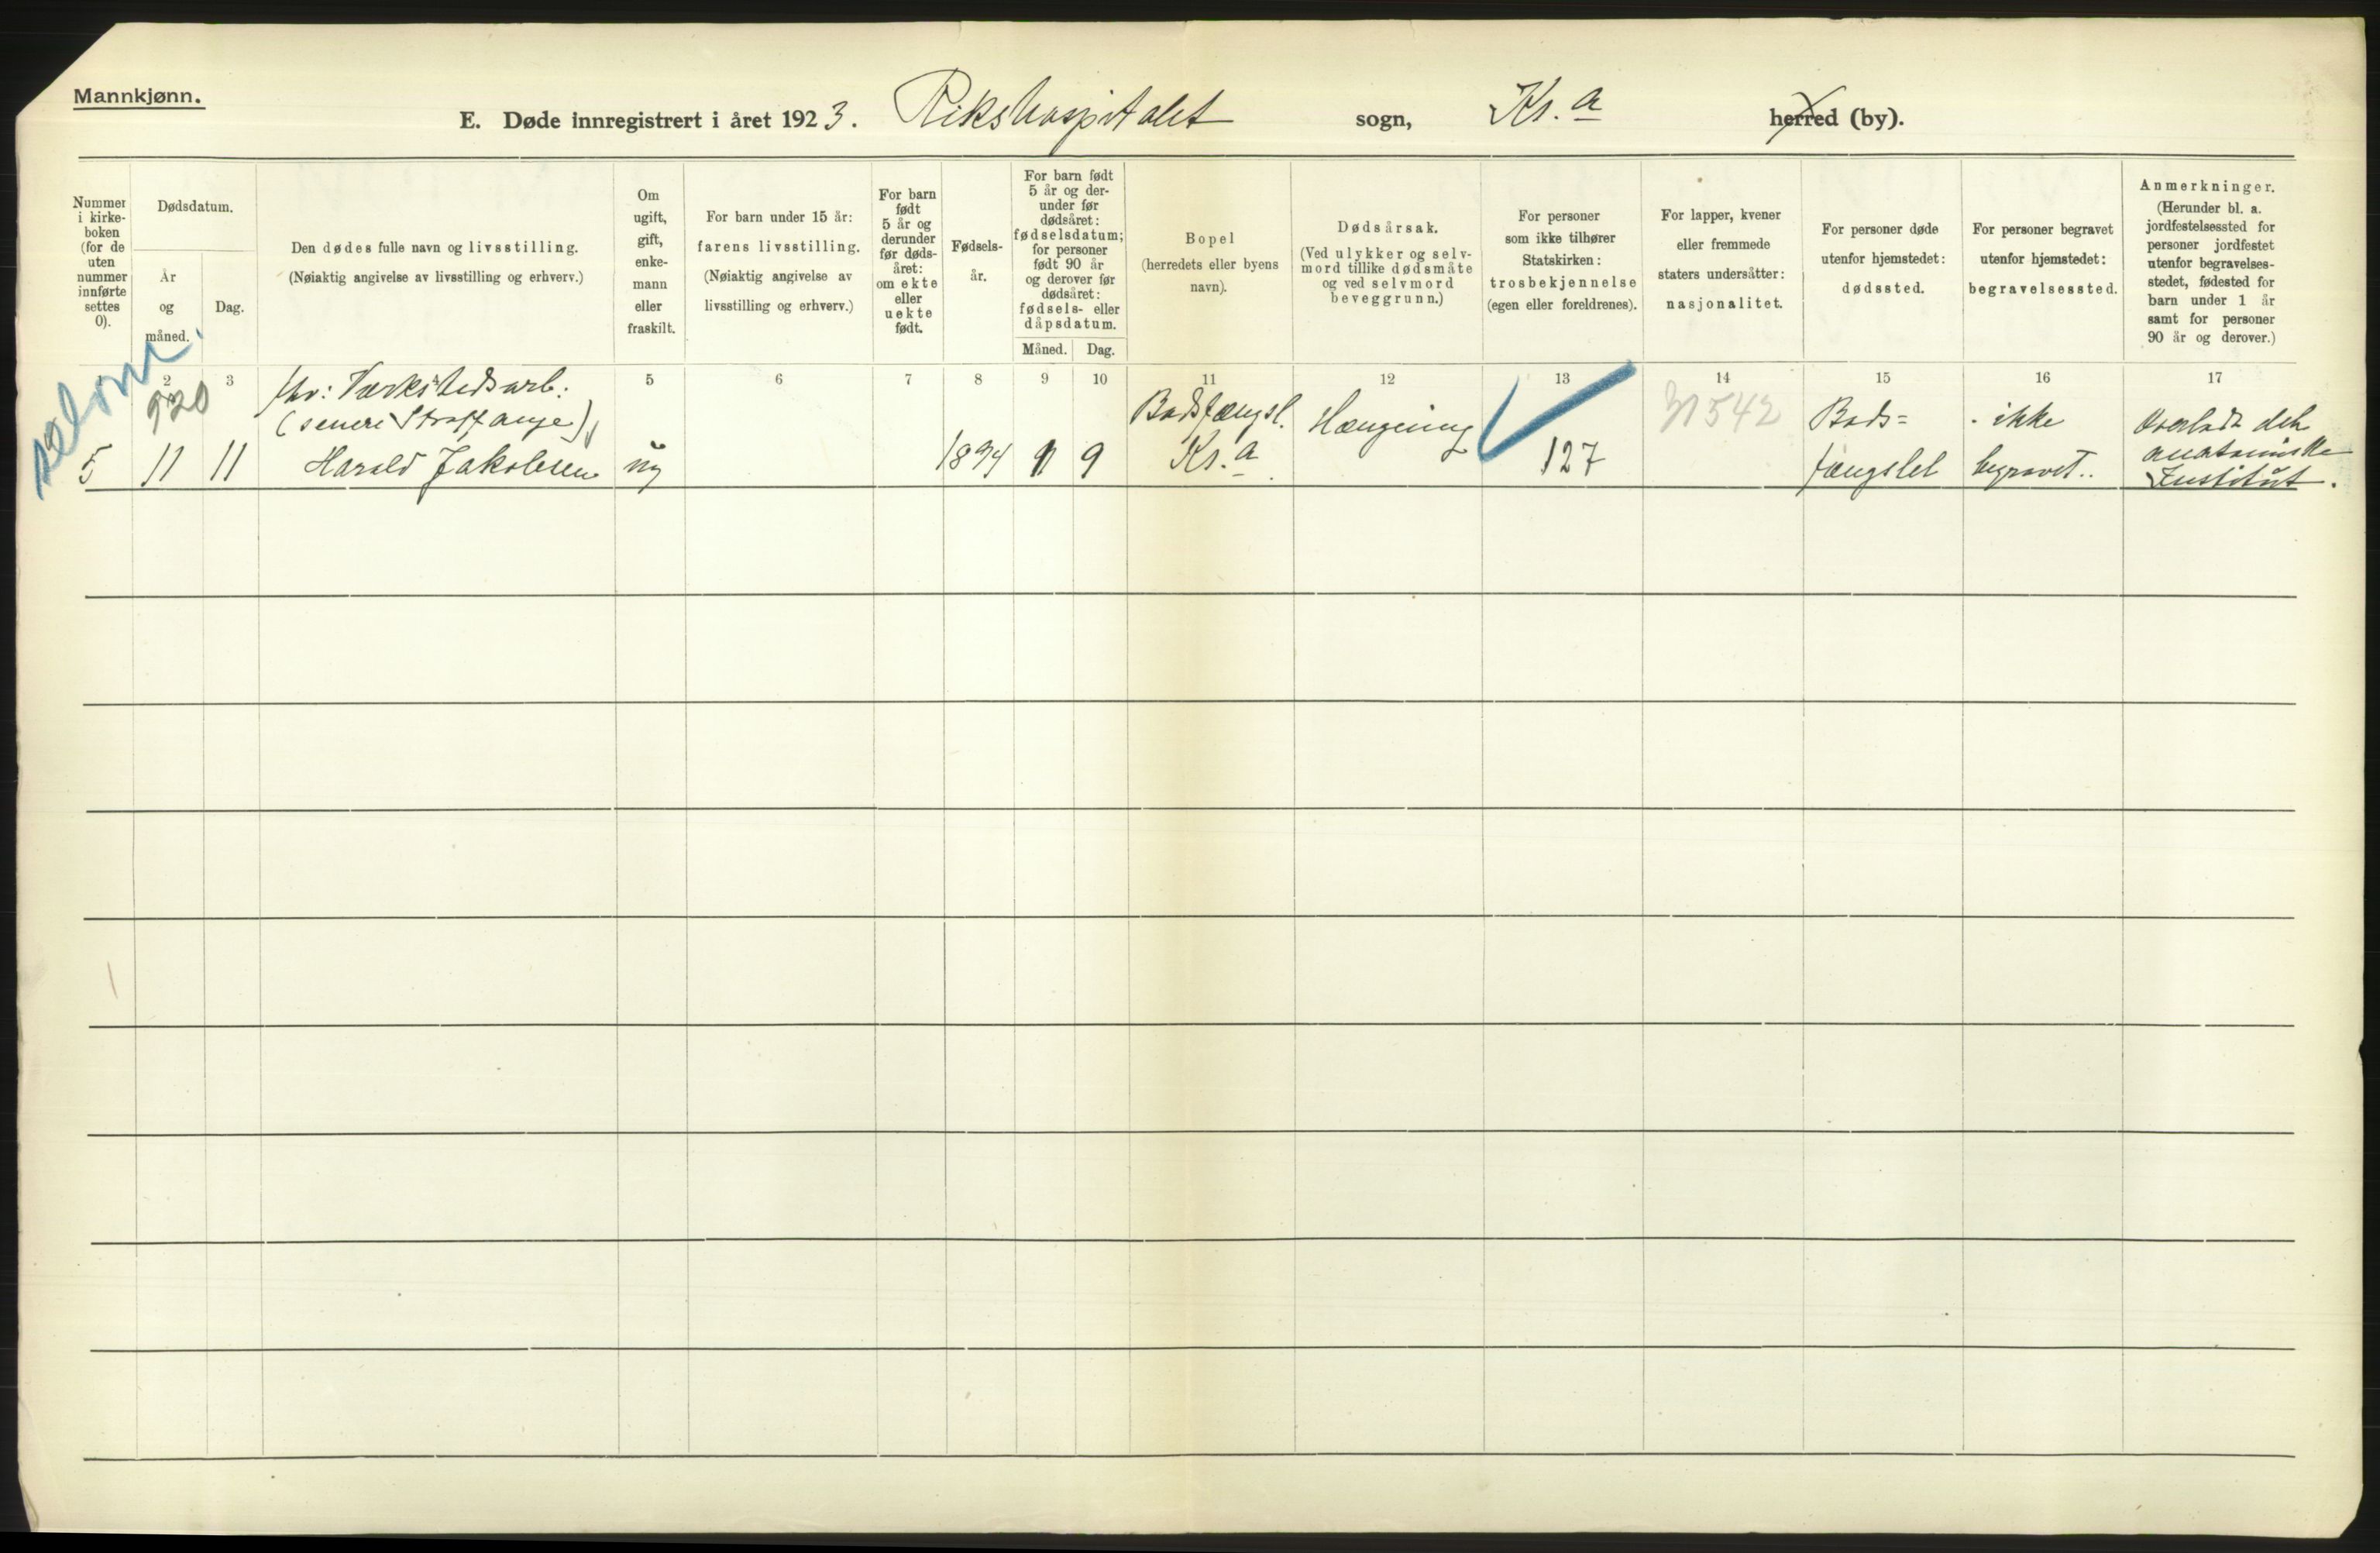 Mannkjønn.
E. Døde innregistrert i året 1923. Rikshospitalet sogn, Kr.a herred (by).
Nummer
i kirke-
boken
(for de
uten
nummer
innførte
settes
0).
Dødsdatum.
År
og
måned.
Dag.
Den dødes fulle navn og livsstilling.
(Nøiaktig angivelse av livsstilling og erhverv.)
Om
ugift,
gift,
enke-
mann
eller
fraskilt.
For barn under 15 år:
farens livsstilling.
(Nøiaktig angivelse av
livsstilling og erhverv.)
For barn
født
5 år og
derunder
før døds-
året:
om ekte
eller
uekte
født.
Fødsels-
år.
For barn født
5 år og der-
under før
dødsåret:
fødselsdatum;
for personer
født 90 år
og derover før
dødsåret:
fødsels- eller
dåpsdatum.
Måned. Dag.
Bopel
(herredets eller byens
navn).
Dødsårsak.
(Ved ulykker og selv-
mord tillike dødsmåte
og ved selvmord
beveggrunn.)
For personer
som ikke tilhører
Statskirken:
trosbekjennelse
(egen eller foreldrenes).
For lapper, kvener
eller fremmede
staters undersåtter:
nasjonalitet.
For personer døde
utenfor hjemstedet:
dødssted.
For personer begravet
utenfor hjemstedet:
begravelsessted.
Anmerkninger.
(Herunder bl. a.
jordfestelsessted for
personer jordfestet
utenfor begravelses-
stedet, fødested for
barn under 1 år
samt for personer
90 år og derover.)
2 3 5 6 7 8 9 10 11 12 13 14 15 16 17
selvm.
920
fhv: Værkstedsarb.
(senere Straffange)
5 11 11 Harald Jakobsen ug 1894 9
Badsfængsl.
Kr.a
Hængning
127
31542
Bods=
fængslet
ikke
begravet..
Overladt det
anatomiske
Institut.